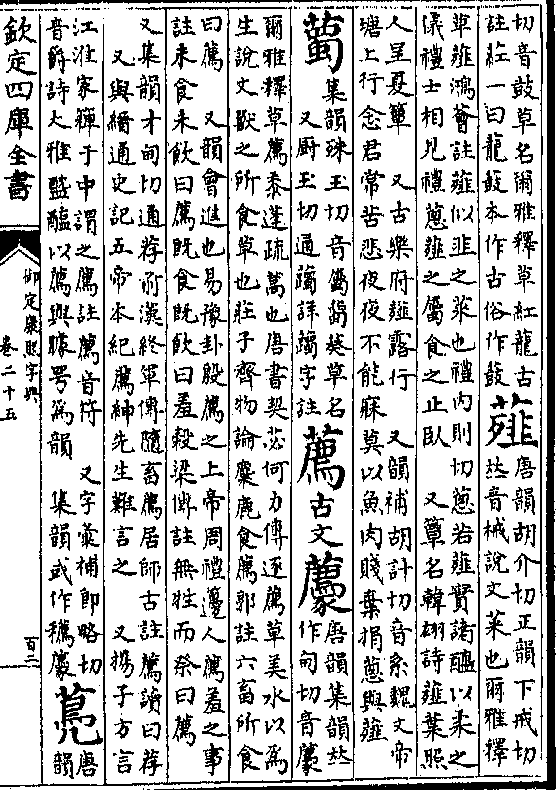 切音鼓草名爾雅釋草紅蘢古
註經一曰龍鼓本作古俗作鼓
薤
唐韻胡介切正韻下戒切
𠀤音械說文菜也爾雅釋
草薤鴻薈註薤似韭之菜也禮內則切蔥若薤實諸醯以柔之
儀禮士相見禮蔥薤之屬食之止臥　又簟名韓翃詩薤葉照
人呈夏簟　又古樂府薤露行　又韻補胡計切音系魏文帝
塘上行念君常苦悲夜夜不能寐莫以魚肉賤棄捐蔥與薤
蔮
集韻殊玉切音屬
草名
又厨玉切通躅詳躅字註
薦
古文
薼
唐韻集韻𠀤
作甸切音
爾雅釋草薦黍蓬疏蒿也唐書契苾何力傳逐薦草美水以爲
生說文獸之所食草也莊子齊物論麋鹿食薦郭註六畜所食
曰薦　又韻會進也易豫卦殷薦之上帝周禮籩人薦羞之事
註未食未飲曰薦既食既飲曰羞穀梁傳註無牲而祭曰薦
又集韻才甸切通荐前漢終軍傳隨畜薦居師古註薦讀曰荐
又與縉通史記五帝本紀薦紳先生難言之　又揚子方言
江淮家稺子中謂之薦註薦音符　又字彙補卽略切
音爵詩大雅醓醢以薦與臄咢爲韻　集韻或作
薧
唐
韻
欽定四庫全書
御定康熙字典
卷二十五
百三